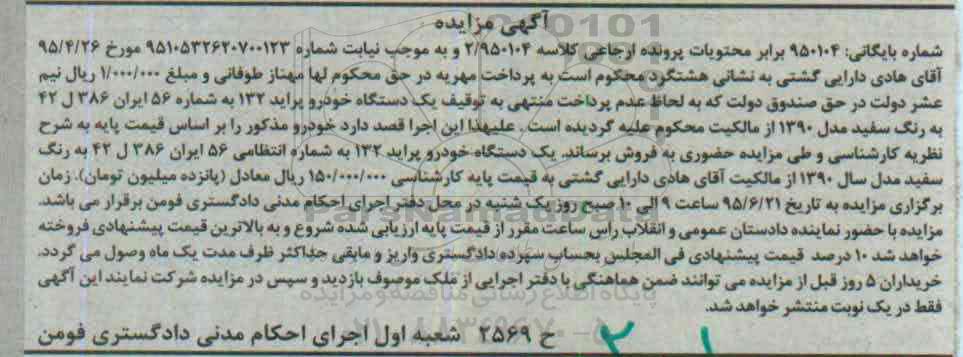 آگهی مزایده
شماره بایگانی: ۹۵۰۱۰۴ برابر محتویات پرونده ارجاعی کلاسه ۲/۹۵۰۱۰۴ و به موجب نیابت شماره ۹۵۱۰۵۳۲۶۲۰۷۰۰۱۲۳ مورخ ۹۵/۴/۲۶
آقای هادی دارایی گشتی به نشانی هشتگرد محکوم است به پرداخت مهریه در حق محکوم لها مهناز طوفانی و مبلغ ۱/۰۰۰/۰۰۰ ریال نیم
عشر دولت در حق صندوق دولت که به لحاظ عدم پرداخت منتهی به توقیف یک دستگاه خودرو پراید ۱۳۲ به شماره ۵۶ ایران ۳۸۶ ل ۴۲
به رنگ سفید مدل ۱۳۹۰ از مالکیت محکوم علیه گردیده است . علیهذا این اجرا قصد دارد خودرو مذکور را بر اساس قیمت پایه به شرح
نظریه کارشناسی و طی مزایده حضوری به فروش برساند. یک دستگاه خودرو پراید ۱۳۲ به شماره انتظامی ۵۶ ایران ۳۸۶ ل ۴۲ به رنگ
سفید مدل سال ۱۳۹۰ از مالکیت آقای هادی دارایی گشتی به قیمت پایه کارشناسی ۱۵۰/۰۰۰/۰۰۰ ریال معادل (پانزده میلیون تومان). زمان
برگزاری مزایده به تاریخ ۹۵/۶/۲۱ ساعت ۹ الی ۱۰ صبح روز یک شنبه در محل دفتر اجرای احکام مدنی دادگستری فومن برقرار می باشد.
مزایده با حضور نماینده دادستان عمومی و انقلاب راس ساعت مقرر از قیمت پایه ارزیابی شده شروع و به بالاترین قیمت پیشنهادی فروخته
خواهد شد ۱۰ درصد قیمت پیشنهادی فی المجلس بحساب سپرده دادگستری واریز و مابقی حداکثر ظرف مدت یک ماه وصول می گردد.
خریداران ۵ روز قبل از مزایده می توانند ضمن هماهنگی با دفتر اجرایی از ملک موصوف بازدید و سپس در مزایده شرکت نمایند این آگهی
فقط در یک نوبت منتشر خواهد شد.
ح ۲۵۶۹ شعبه اول اجرای احکام مدنی دادگستری فومن
ParsNamadData
پایگاه اطلاع رسانی مناقصه و مزایده